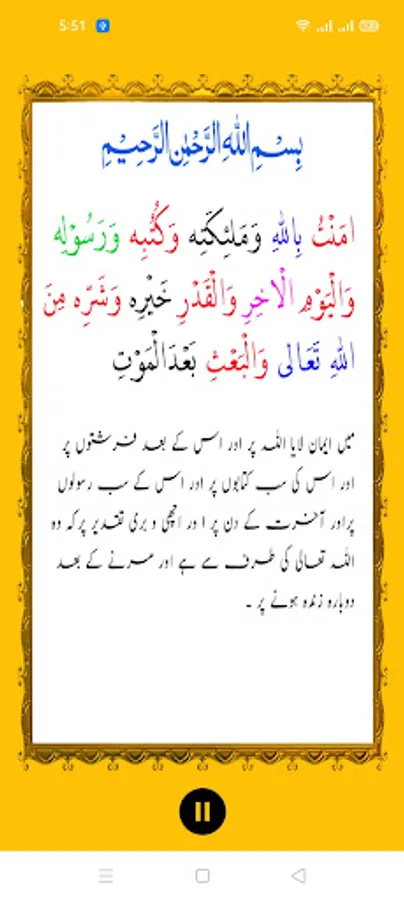 5:51
بِسْمِ اللّٰهِ الرَّحْمٰنِ الرَّحِيْمِ
اٰمَنْتُ بِاللّٰهِ وَمَلٰئِكَتِهٖ وَكُتُبِهٖ وَرَسُوْلِهٖ
وَالْيَوْمِ الْاٰخِرِ وَالْقَدْرِ خَيْرِهٖ وَشَرِّهٖ مِنَ
اللّٰهِ تَعَالٰى وَالْبَعْثِ بَعْدَالْمَوْتِ
میں ایمان لایا اللہ پر اور اس کے بعد فرشتوں پر
اور اس کی سب کتابوں پر اور اس کے سب رسولوں
پراور آخرت کے دن پر ا ور اچھی و بری تقدیر پر کہ وہ
اللہ تعالی کی طرف سے ہے اور مرنے کے بعد
دوبارہ زندہ ہونے پر ۔